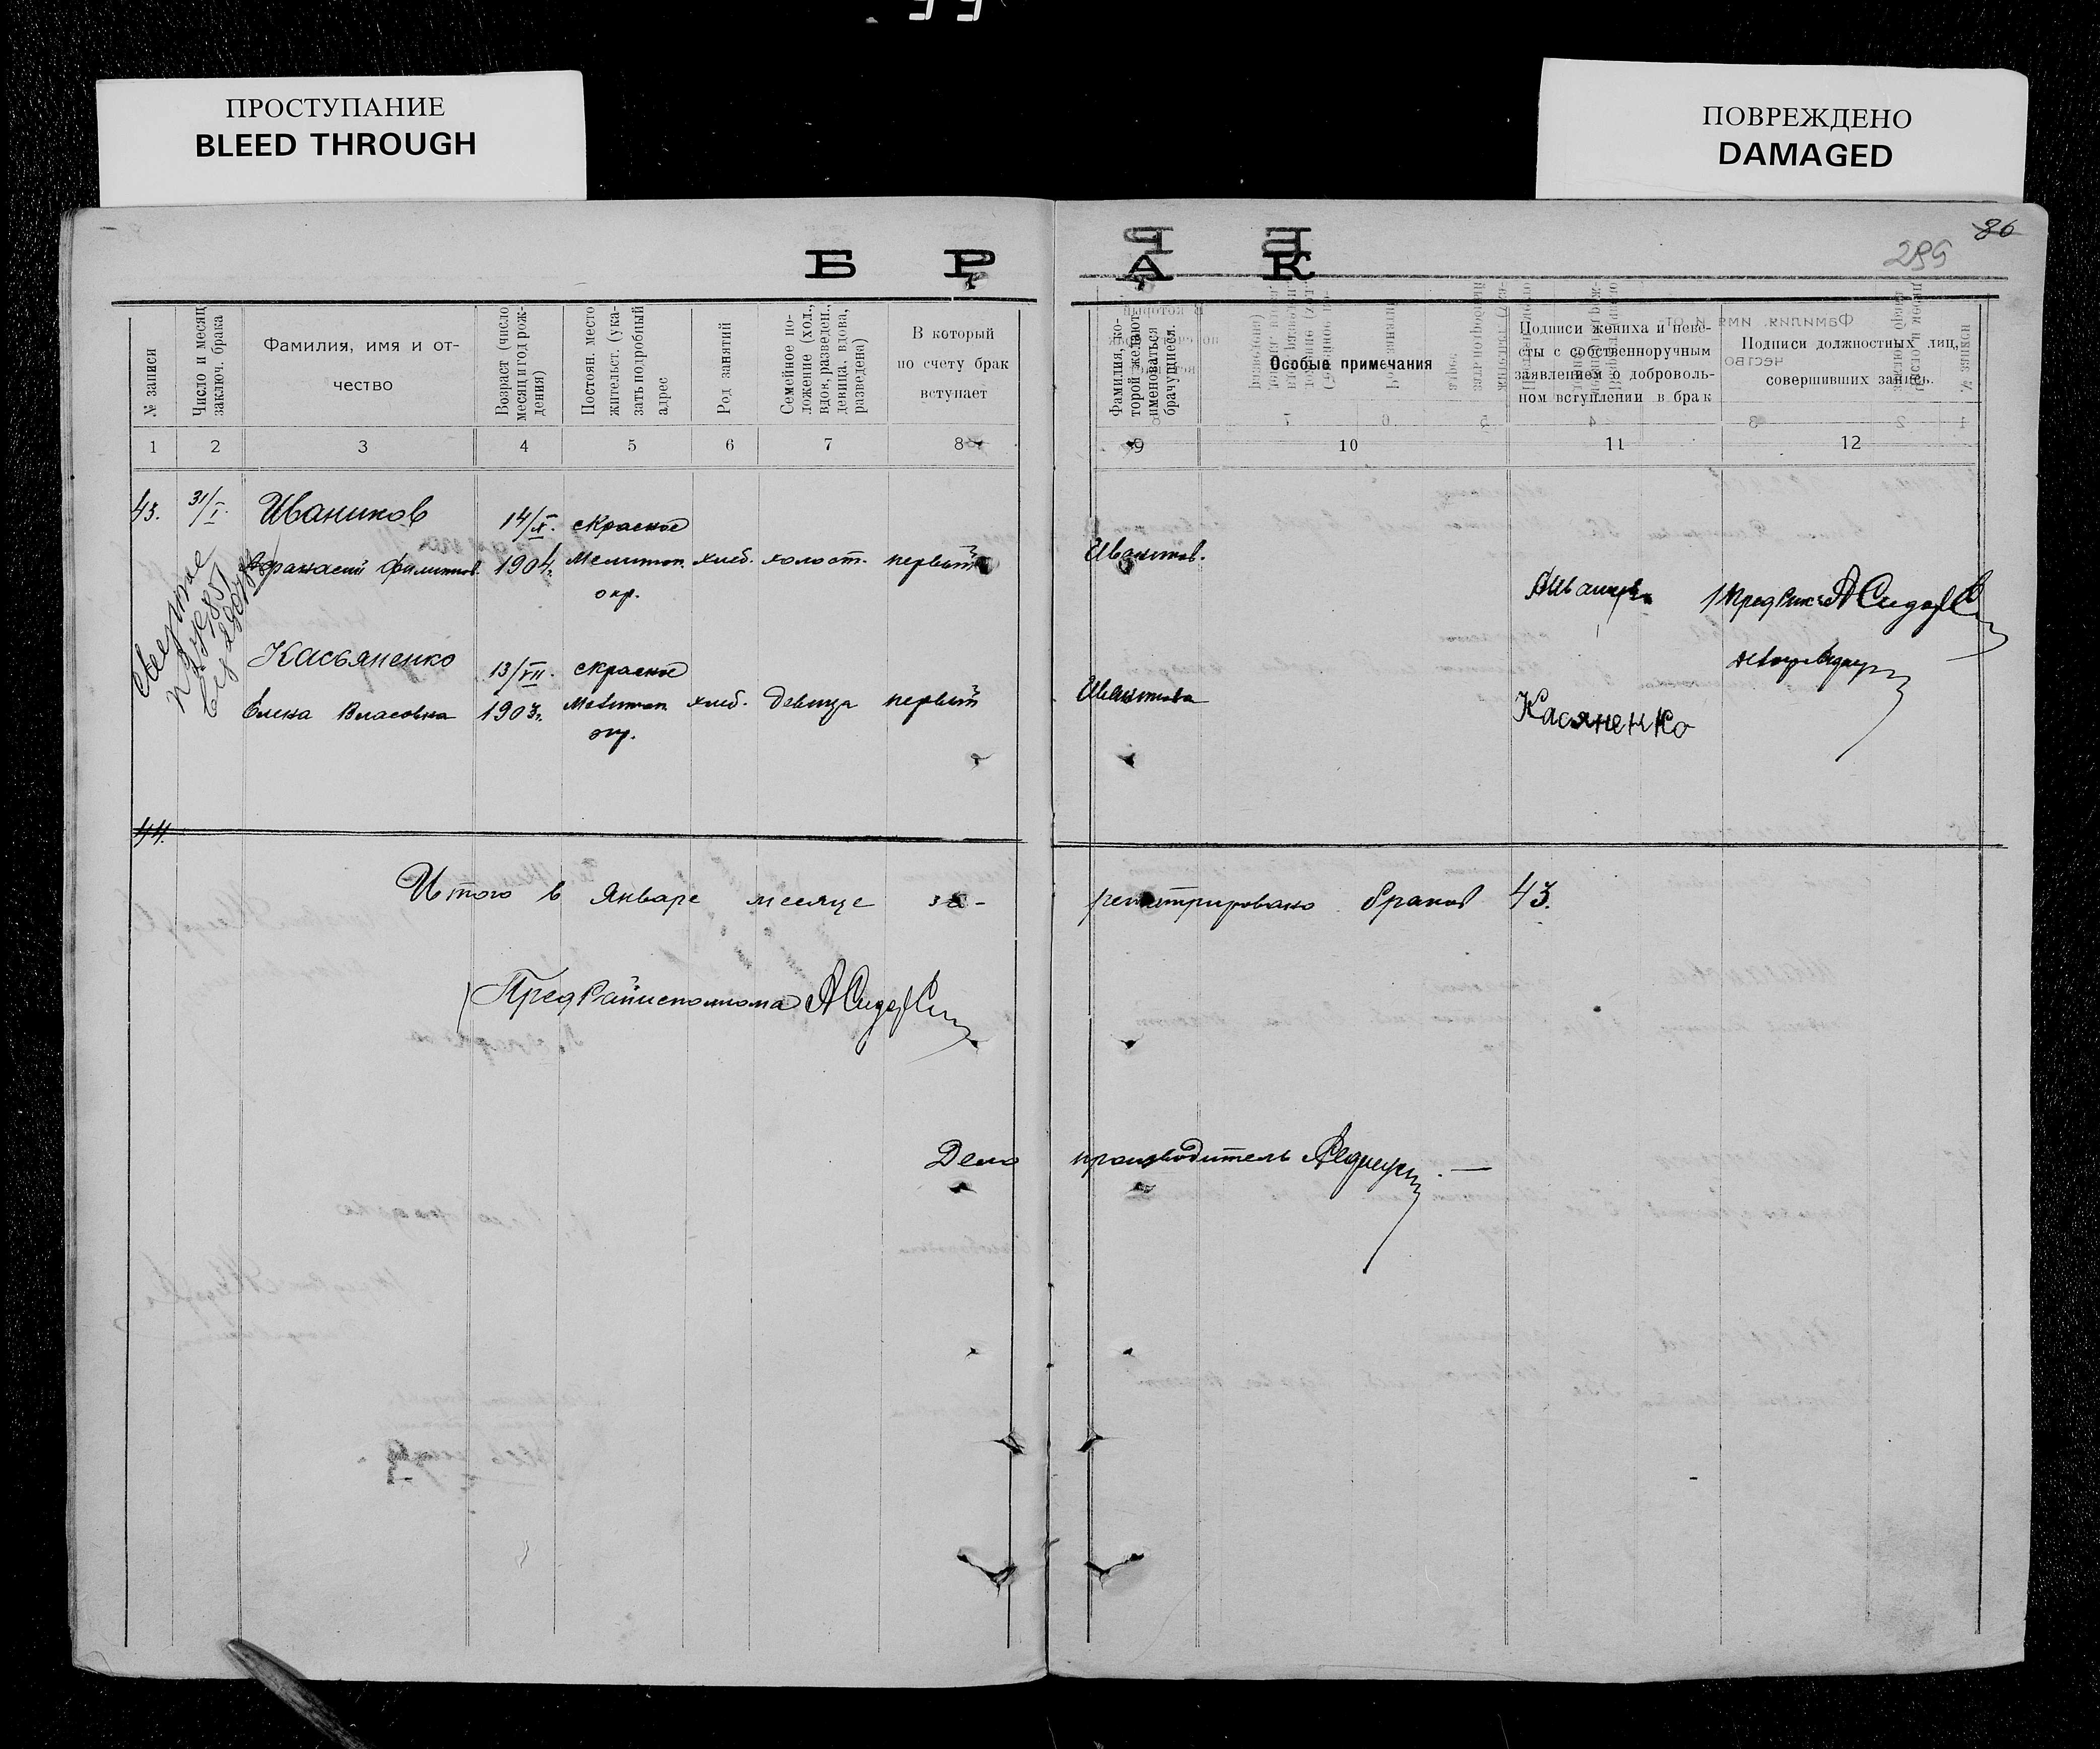 ПРОСТУПАНИЕ
BLEED THROUGH
ПОВРЕЖДЕНО
DAMAGED
86
Б Р А К
№ записи
Число и месяц
заключ. брака
Фамилия, имя и от-
чество
Возраст (число
месяц и год рож-
дения)
Постоян. место
жительст. (ука-
зать подробный
адрес
Род занятий
Семейное по-
ложение (хол.,
вдов, разведен.,
девица, вдова,
разведена)
В который
по счету брак
вступает
Фамилия, ко-
торой желают
именоваться
брачущиеся.
Особые примечания
Подписи жениха и неве-
сты с собственноручным
заявлением о доброволь-
ном вступлении в брак
Подписи должностных лиц,
совершивших запись.
1 2 3 4 5 6 7 8 9 10 11 12
43. 31/I. Иваников 14/X. с Красное
Афанасий Филиппов. 1904 г. Мелитоп. хлеб. холост. первый Иваников.
окр.
Касьяненко 13/VII. с Красное
Елена Власовна 1903 г. Мелитоп. хлеб. девица первый Иваникова
окр.
Касяненко
44.
Итого в Январе месяце за- регистрировано браков 43.
Пред Райисполкома
Дело производитель